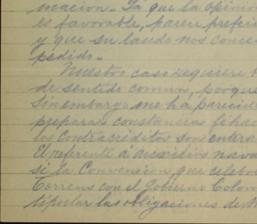 macion. Ya que la opinion
es favorable, parece prefer
y que su laudo nos conce
pedido.
Nuestro caso requiere
de sentido comun, porque
Sin embargo me ha parecid
preparar constancias fehac
los contracréditos son entera
El referente á auxilios nava
si la Convencion que celebr
Torrens con el Gobierno Colom
tipular las obligaciones de